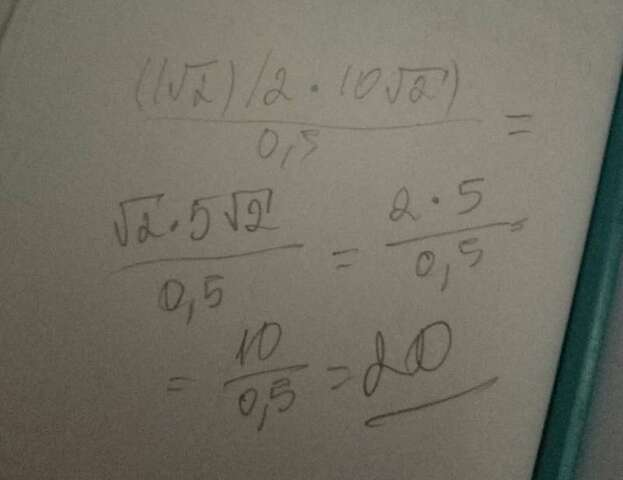 ((1√2)/2 · 10√2)
0,5 =
√2 · 5√2 / 0,5 = 2 · 5 / 0,5 =
= 10 / 0,5 = 20